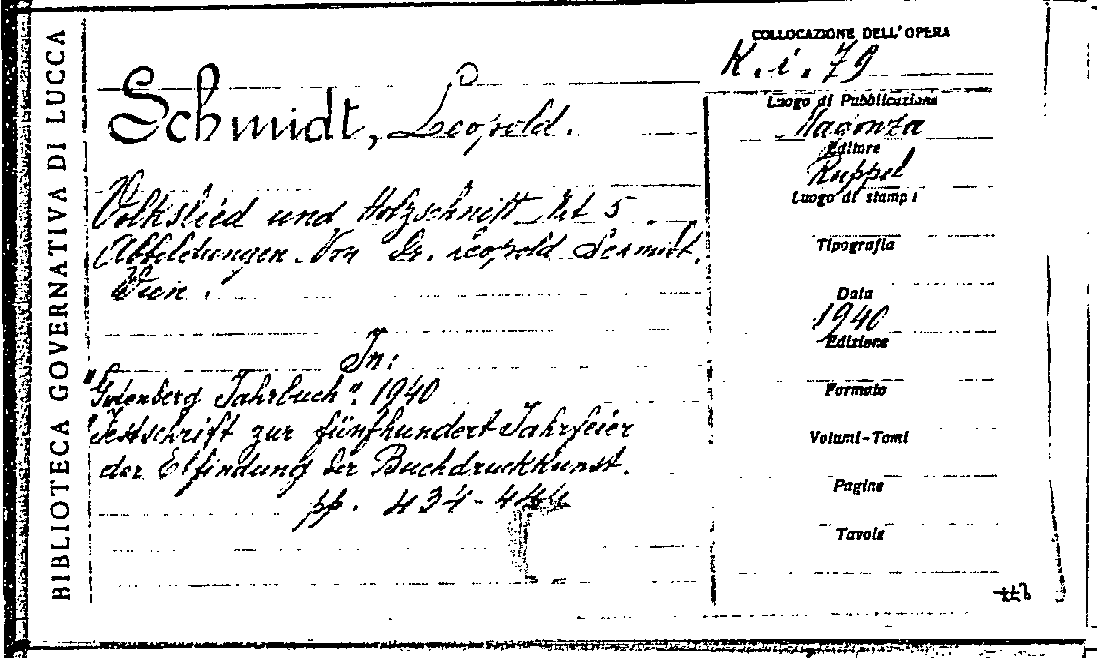 BIBLIOTECA GOVERNATIVA DI LUCCA
Schmidt, Leopold.
Volkslied und Holzschnitt Mit 5
Abbildungen. Von Dr. Leopold Schmidt,
Wien.
In:
"Gutenberg Jahrbuch". 1940
Festschrift zur fünfhundert Jahrfeier
der Elfindung der Buchdruckkunst.
pp. 434-444
COLLOCAZIONE DELL'OPERA
K. i. 79
Luogo di Pubblicazione
Magonza
Editore
Ruppel
Luogo di stampa
Tipografia
Data
1940
Edizione
Formato
Volumi-Tomi
Pagine
Tavole